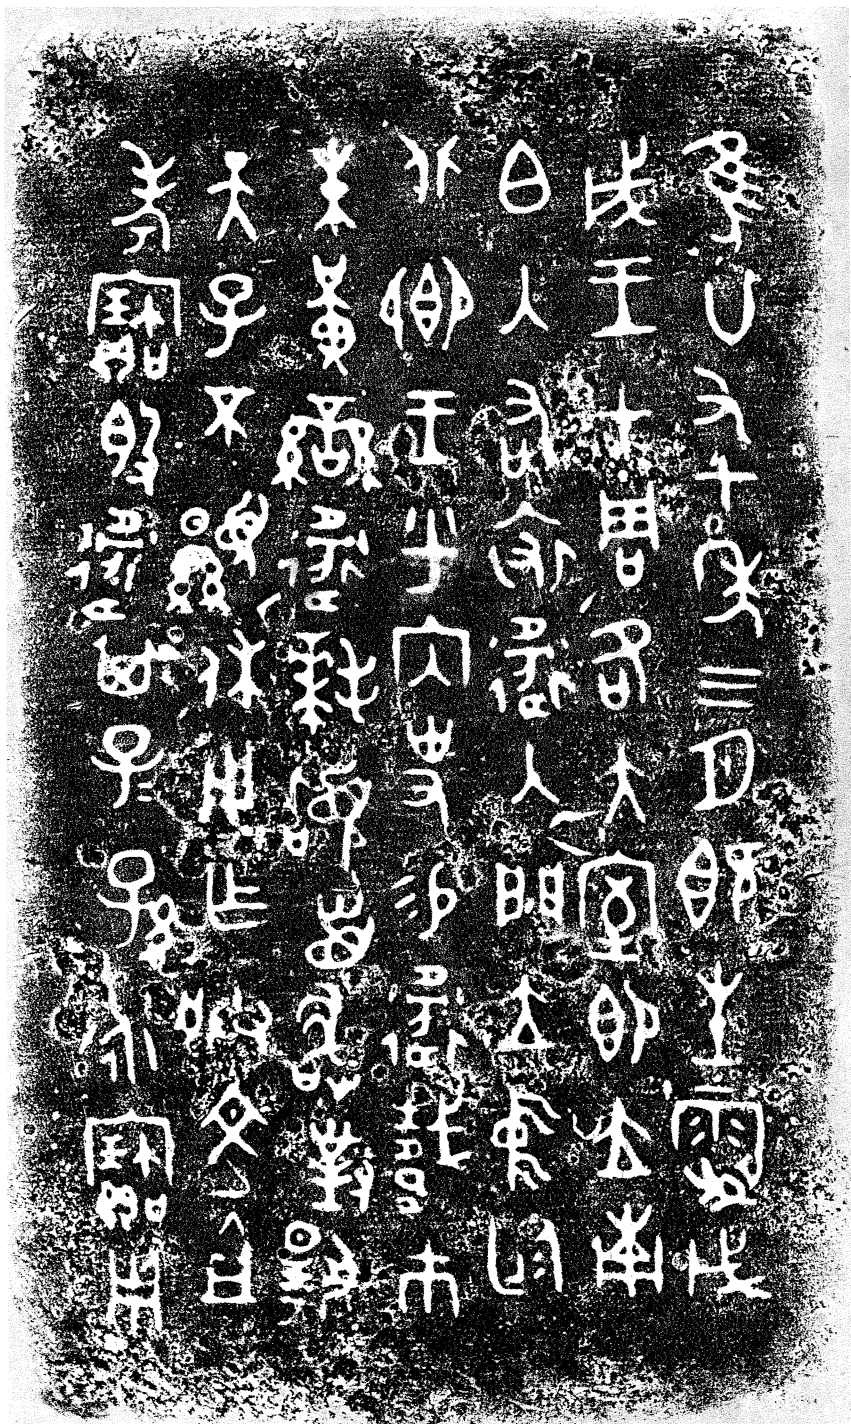 隹廿又七年三月既生霸戊
戌王才周各大室即立南
白入右裘衛入門立中廷
北鄉王乎內史易衛𢧁巿
朱黃䜌衛拜𩒨首敢對揚
天子不顯休用乍朕文且
考寶𣪘衛其子子孫孫永寶用